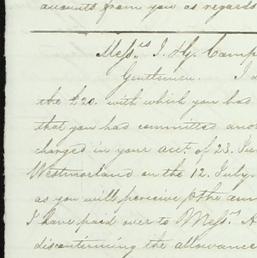 accounts from you as regards
Mess.rs J. & G. Camp
Gentlemen. I a
the £20. with which you had
that you had committed ano
charges in your acct. of 23. Ju
Westmorland on the 12. July.
as you will perceive the am
I have paid over to Messrs. A
discontinuing the allowance